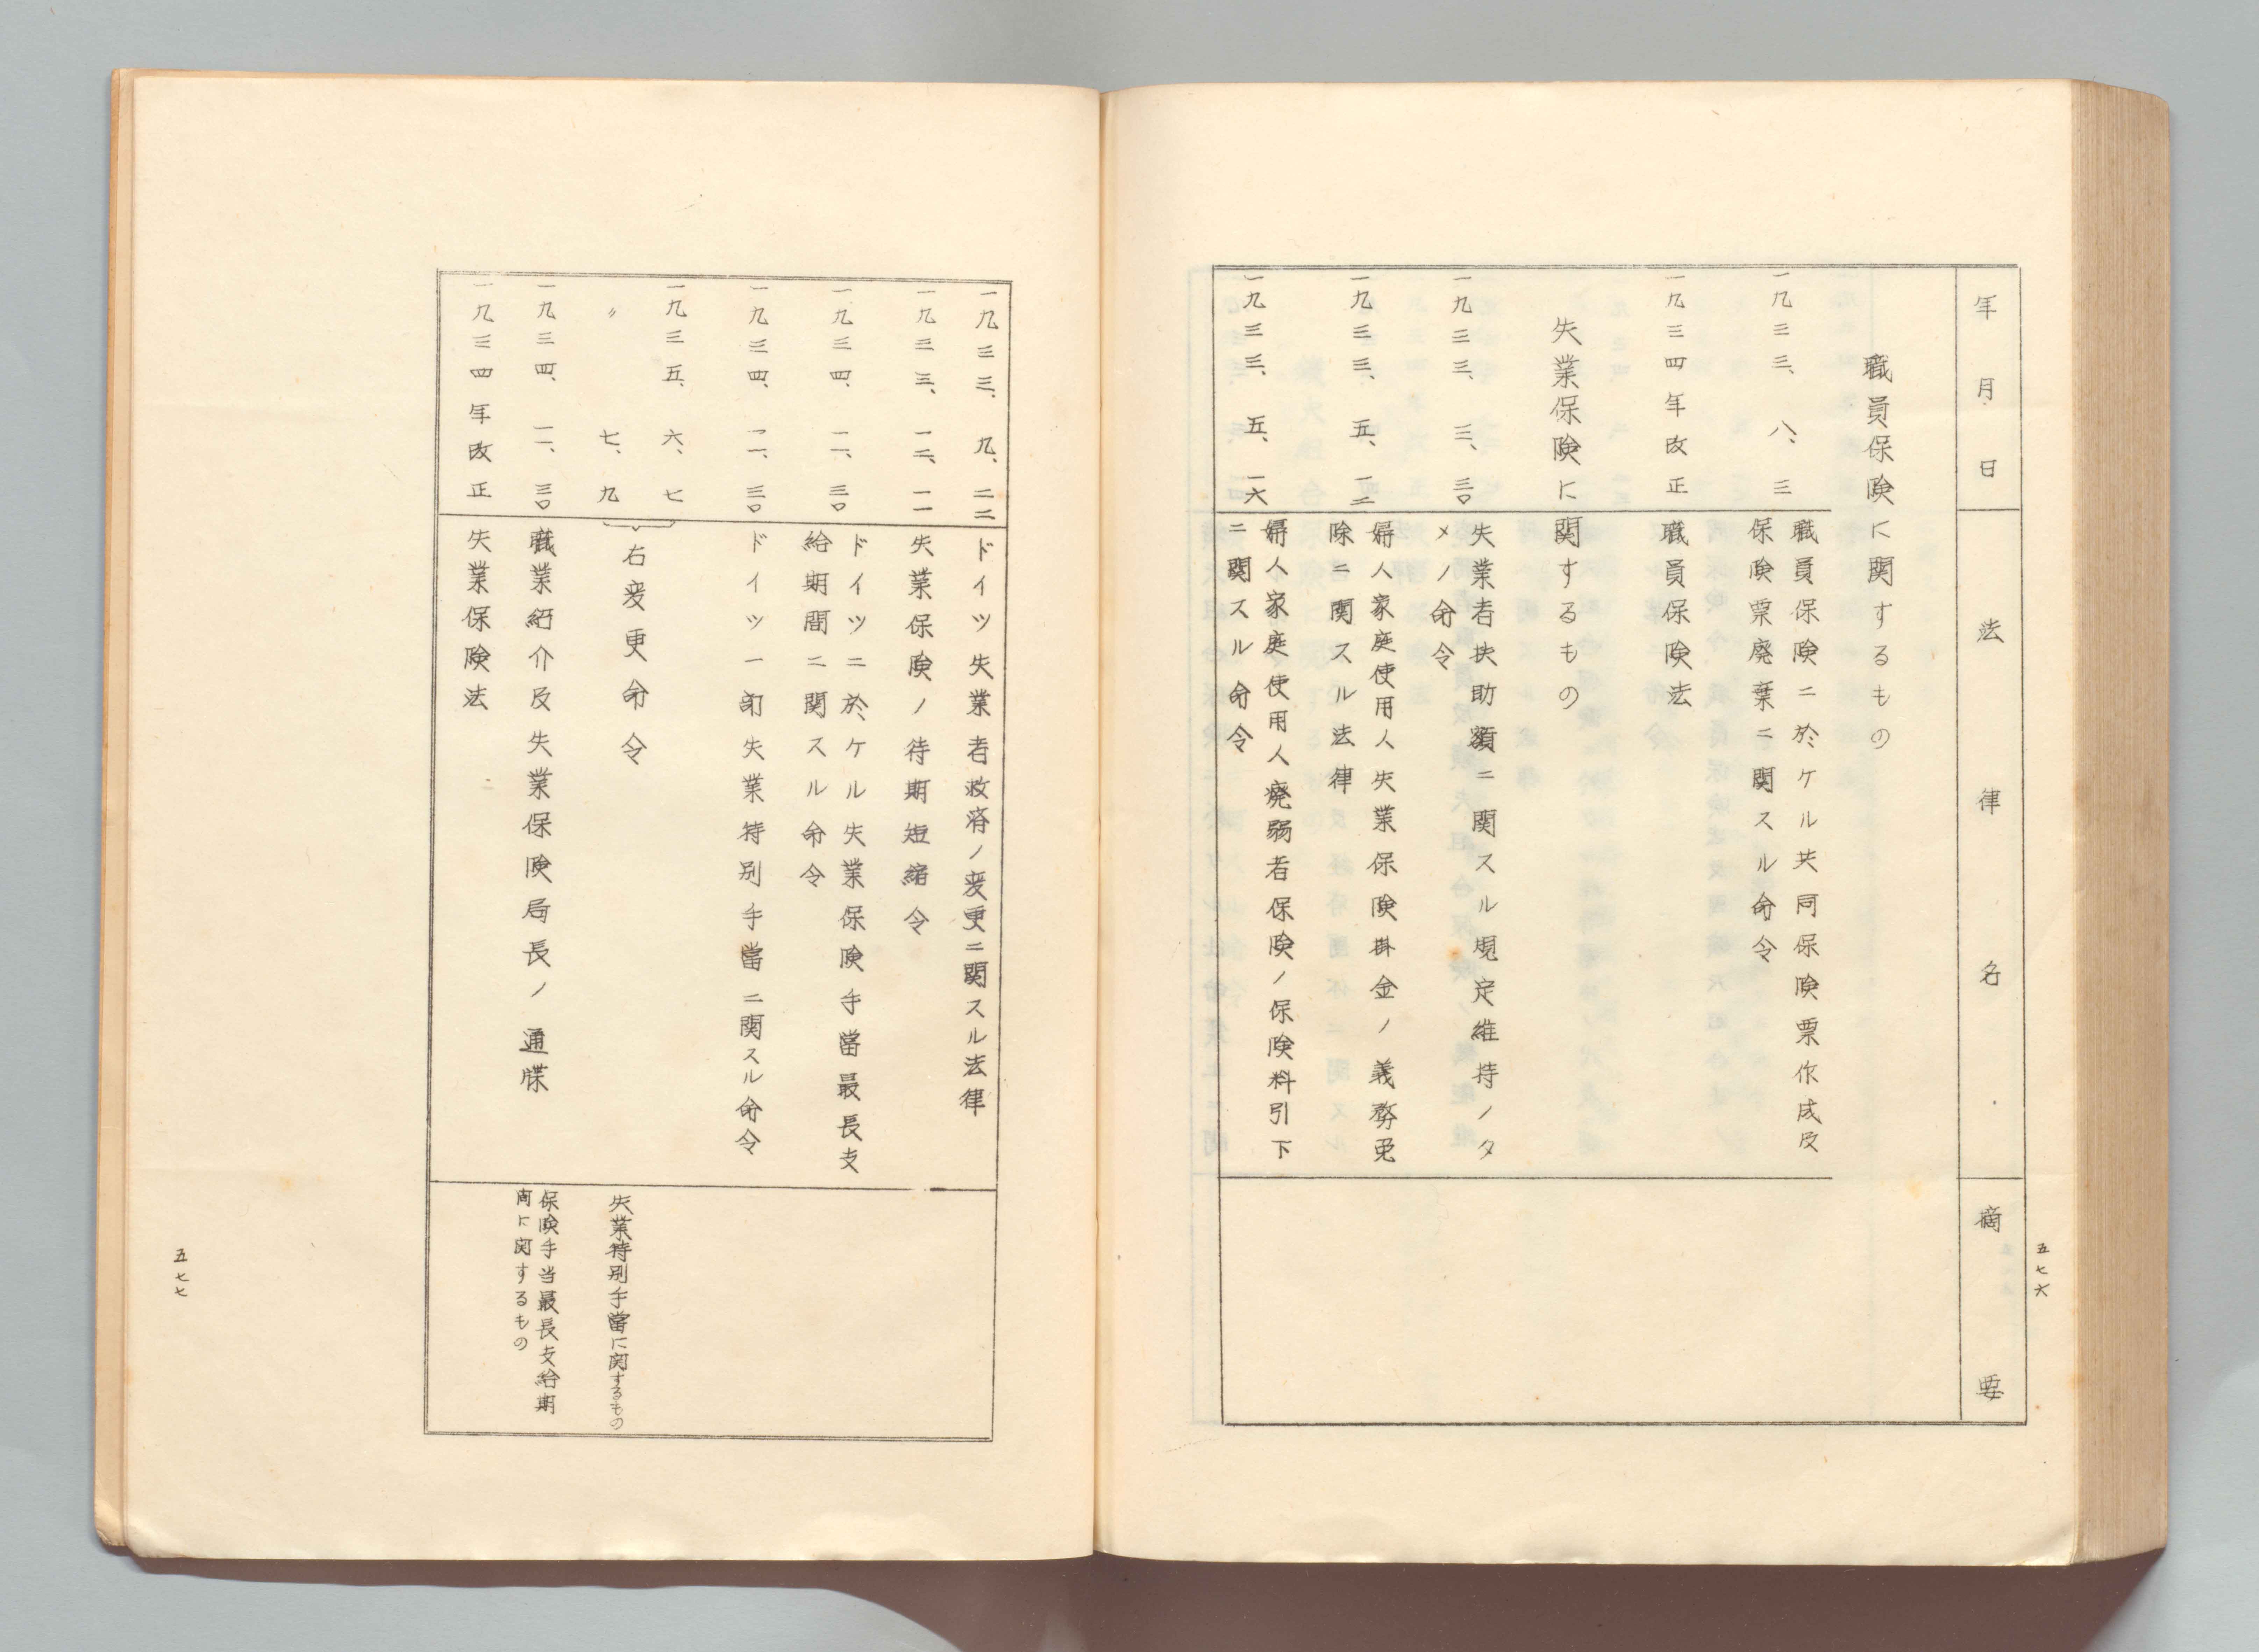 年月日 法律名 摘要
職員保険に関するもの
一九三三、八、三 職員保険ニ於ケル共同保険票作成及
保険票廃棄ニ関スル命令
一九三四年改正 職員保険法
失業保険に関するもの
一九三三、三、三〇 失業者扶助額ニ関スル規定維持ノタ
メノ命令
一九三三、五、一二 婦人家庭使用人失業保険掛金ノ義務免
除ニ関スル法律
一九三三、五、一六 婦人家庭使用人廃弱者保険ノ保険料引下
ニ関スル命令
五七六
一九三三、九、二二 ドイツ失業者救済ノ変更ニ関スル法律
一九三三、一二、一一 失業保険ノ待期短縮令
一九三四、一一、三〇 ドイツニ於ケル失業保険手當最長支
給期間ニ関スル命令
一九三四、一一、三〇 ドイツ一部失業特別手當ニ関スル命令
一九三五、六、七
〃 七、九 右変更命令 失業特別手當に関するもの
一九三四、一一、三〇 職業紹介及失業保険局長ノ通牒 保険手当最長支給期
間に関するもの
一九三四年改正 失業保険法
五七七